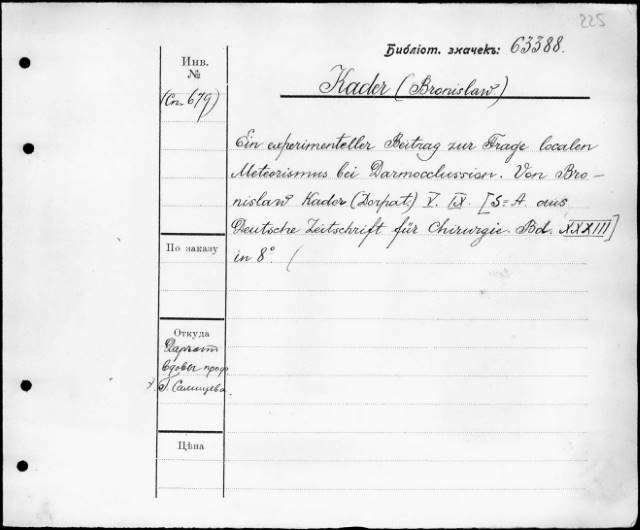 225
Библіот. значекъ: 63388.
Инв.
№
Kader (Bronislaw)
(Сп. 679)
Ein experimenteller Beitrag zur Frage localen
Meteorismus bei Darmocclussion. Von Bro-
nislaw Kader (Dorpat.) V. IX. [S=A. aus
Deutsche Zeitschrift für Chirurgie. Bd. XXXIII]
in 8° (
По заказу
Откуда
Даръ отъ
вдовы проф.
Салищева.
Цѣна